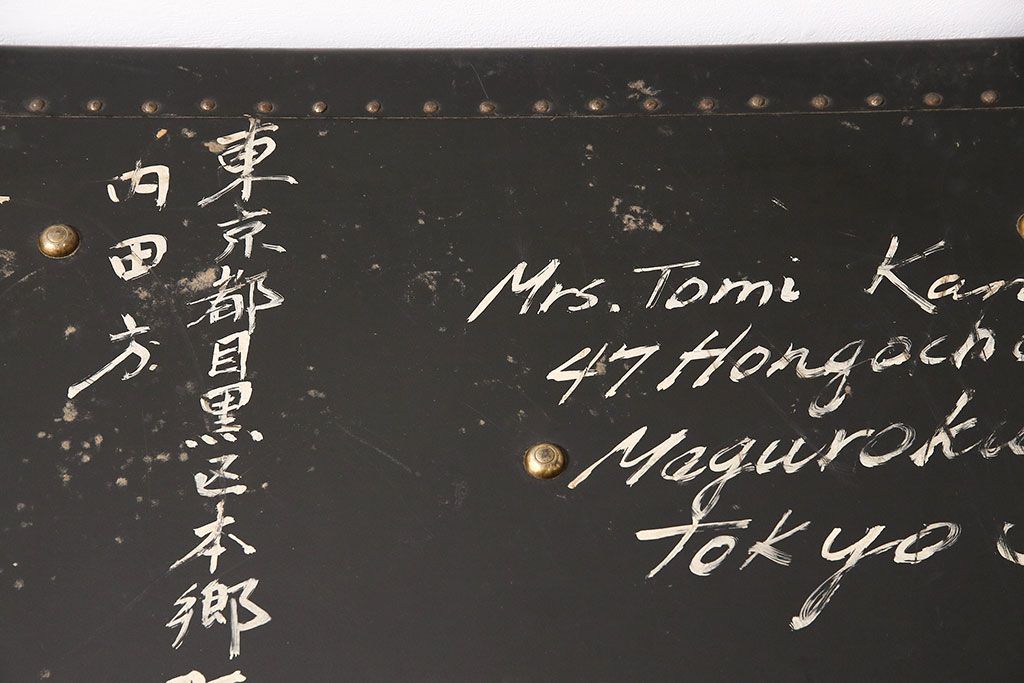 東京都目黒区本郷
内田方
Mrs. Tomi Kan
47 Hongocho
Meguroku
Tokyo